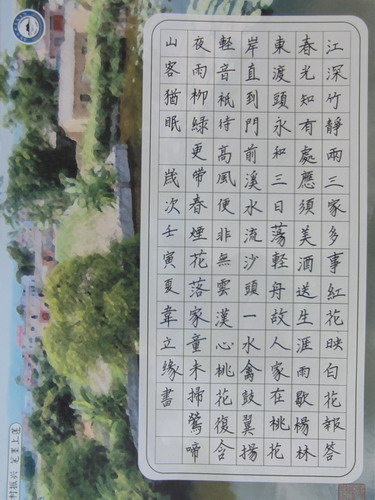 江深竹靜兩三家多事紅花映白花報答
春光知有處應須美酒送生涯雨歇楊林
東渡頭永和三日蕩輕舟故人家在桃花
岸直到門前溪水流沙頭一水禽鼓翼揚
輕音祇待高風便非無雲漢心桃花復含
夜雨柳綠更帶春煙花落家童未掃鶯啼
山客猶眠 歲次壬寅夏韋立緣書